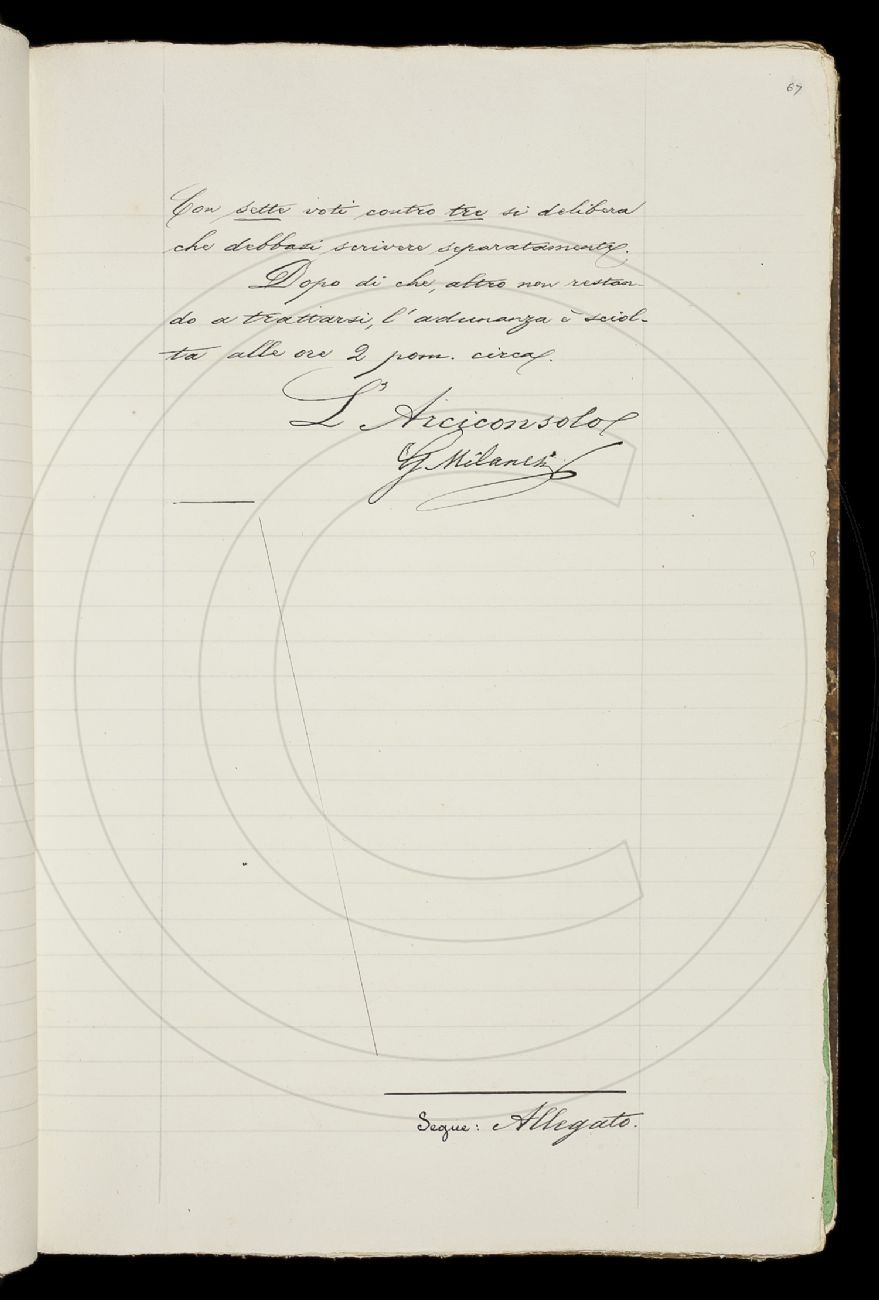 67
Con sette voti contro tre si delibera
che debbasi scrivere separatamente.
Dopo di che, altro non restan-
do a trattarsi, l'adunanza è sciol-
ta alle ore 2 pom. circa.
L'Arciconsolo
G Milanesi
Segue: Allegato.